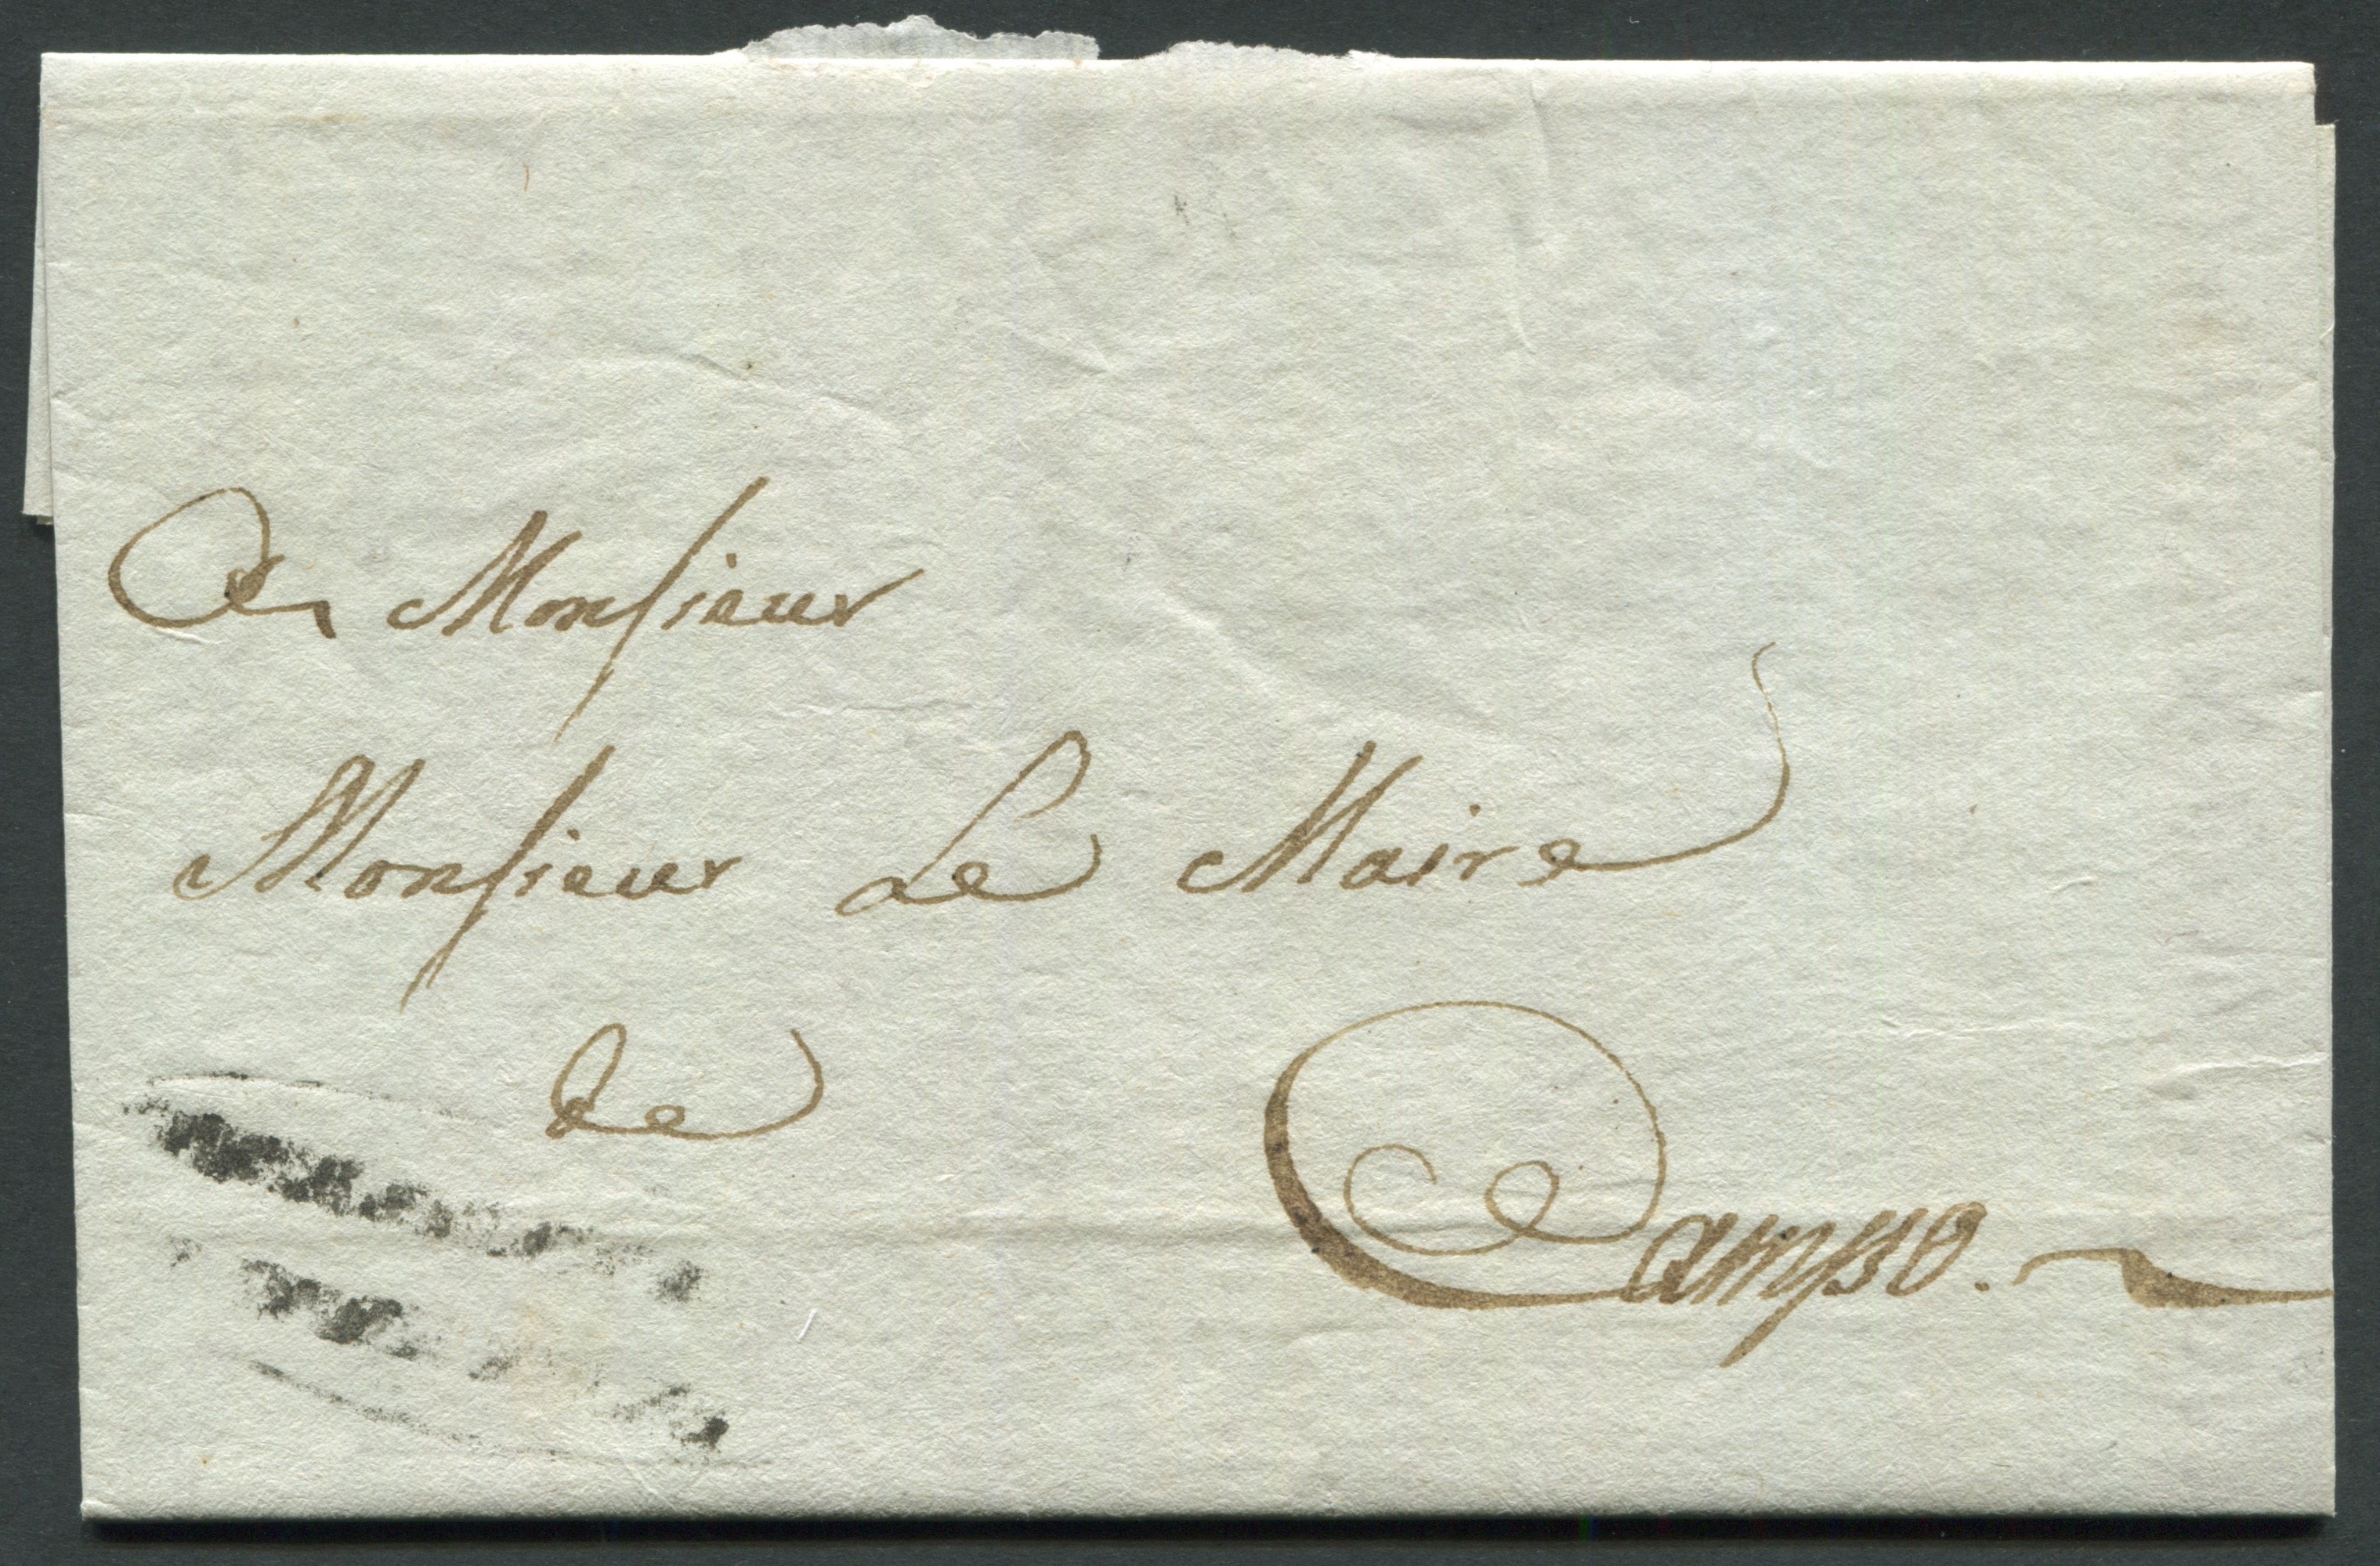 A Monsieur
Monsieur Le Maire
de Campo.